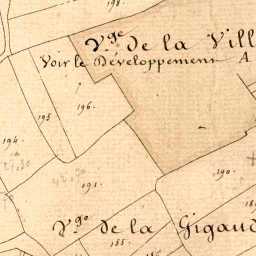 198.
Vge de la Vill
Voir le Développement A
196.
195
194
190.
191.
Vge de la Gigaud
185.
182.